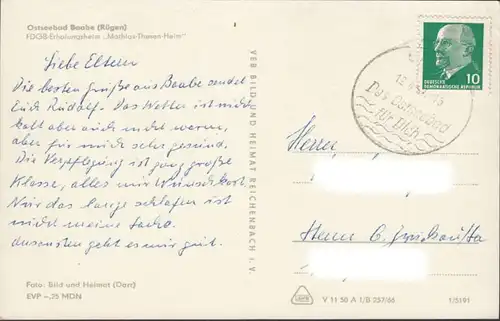 Ostseebad Baabe (Rügen)
FDGB-Erholungsheim „Mathias-Thesen-Heim"
Liebe Eltern
Die besten Grüße aus Baabe sendet
Euch Rudolf. Das Wetter ist nicht
kalt aber auch nicht warm,
aber für mich sehr gesund.
Die Verpflegung ist ganz große
Klasse, alles nur Wunschkost.
Nur das lange schlafen ist
nicht meine Sache.
Ansonsten geht es mir gut.
Foto: Bild und Heimat (Darr)
EVP –,25 MDN
VEB BILD UND HEIMAT REICHENBACH i. V.
Das Ostseebad
für Dich
DEUTSCHE
DEMOKRATISCHE REPUBLIK
10
Herrn
Herrn G.
V 11 50 A 1/B 257/66
1/5191